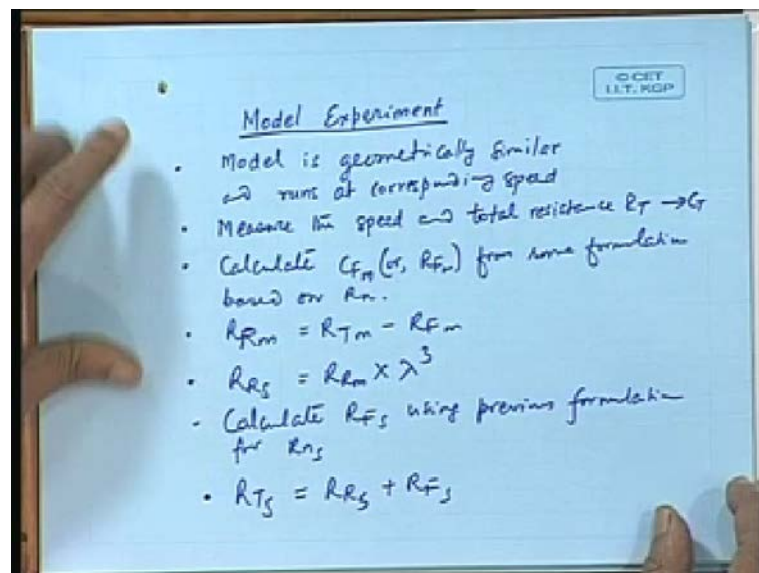 © CET
I.I.T. KGP
Model Experiment
• Model is geometrically similar
and runs at corresponding speed
• Measure the speed and total resistance RT → CT
• Calculate CFm (or, RFm) from some formulation
based on Rn.
• RRm = RTm - RFm
• RRS = RRm × λ³
- Calculate RFS using previous formulation
for RnS
• RTS = RRS + RFS